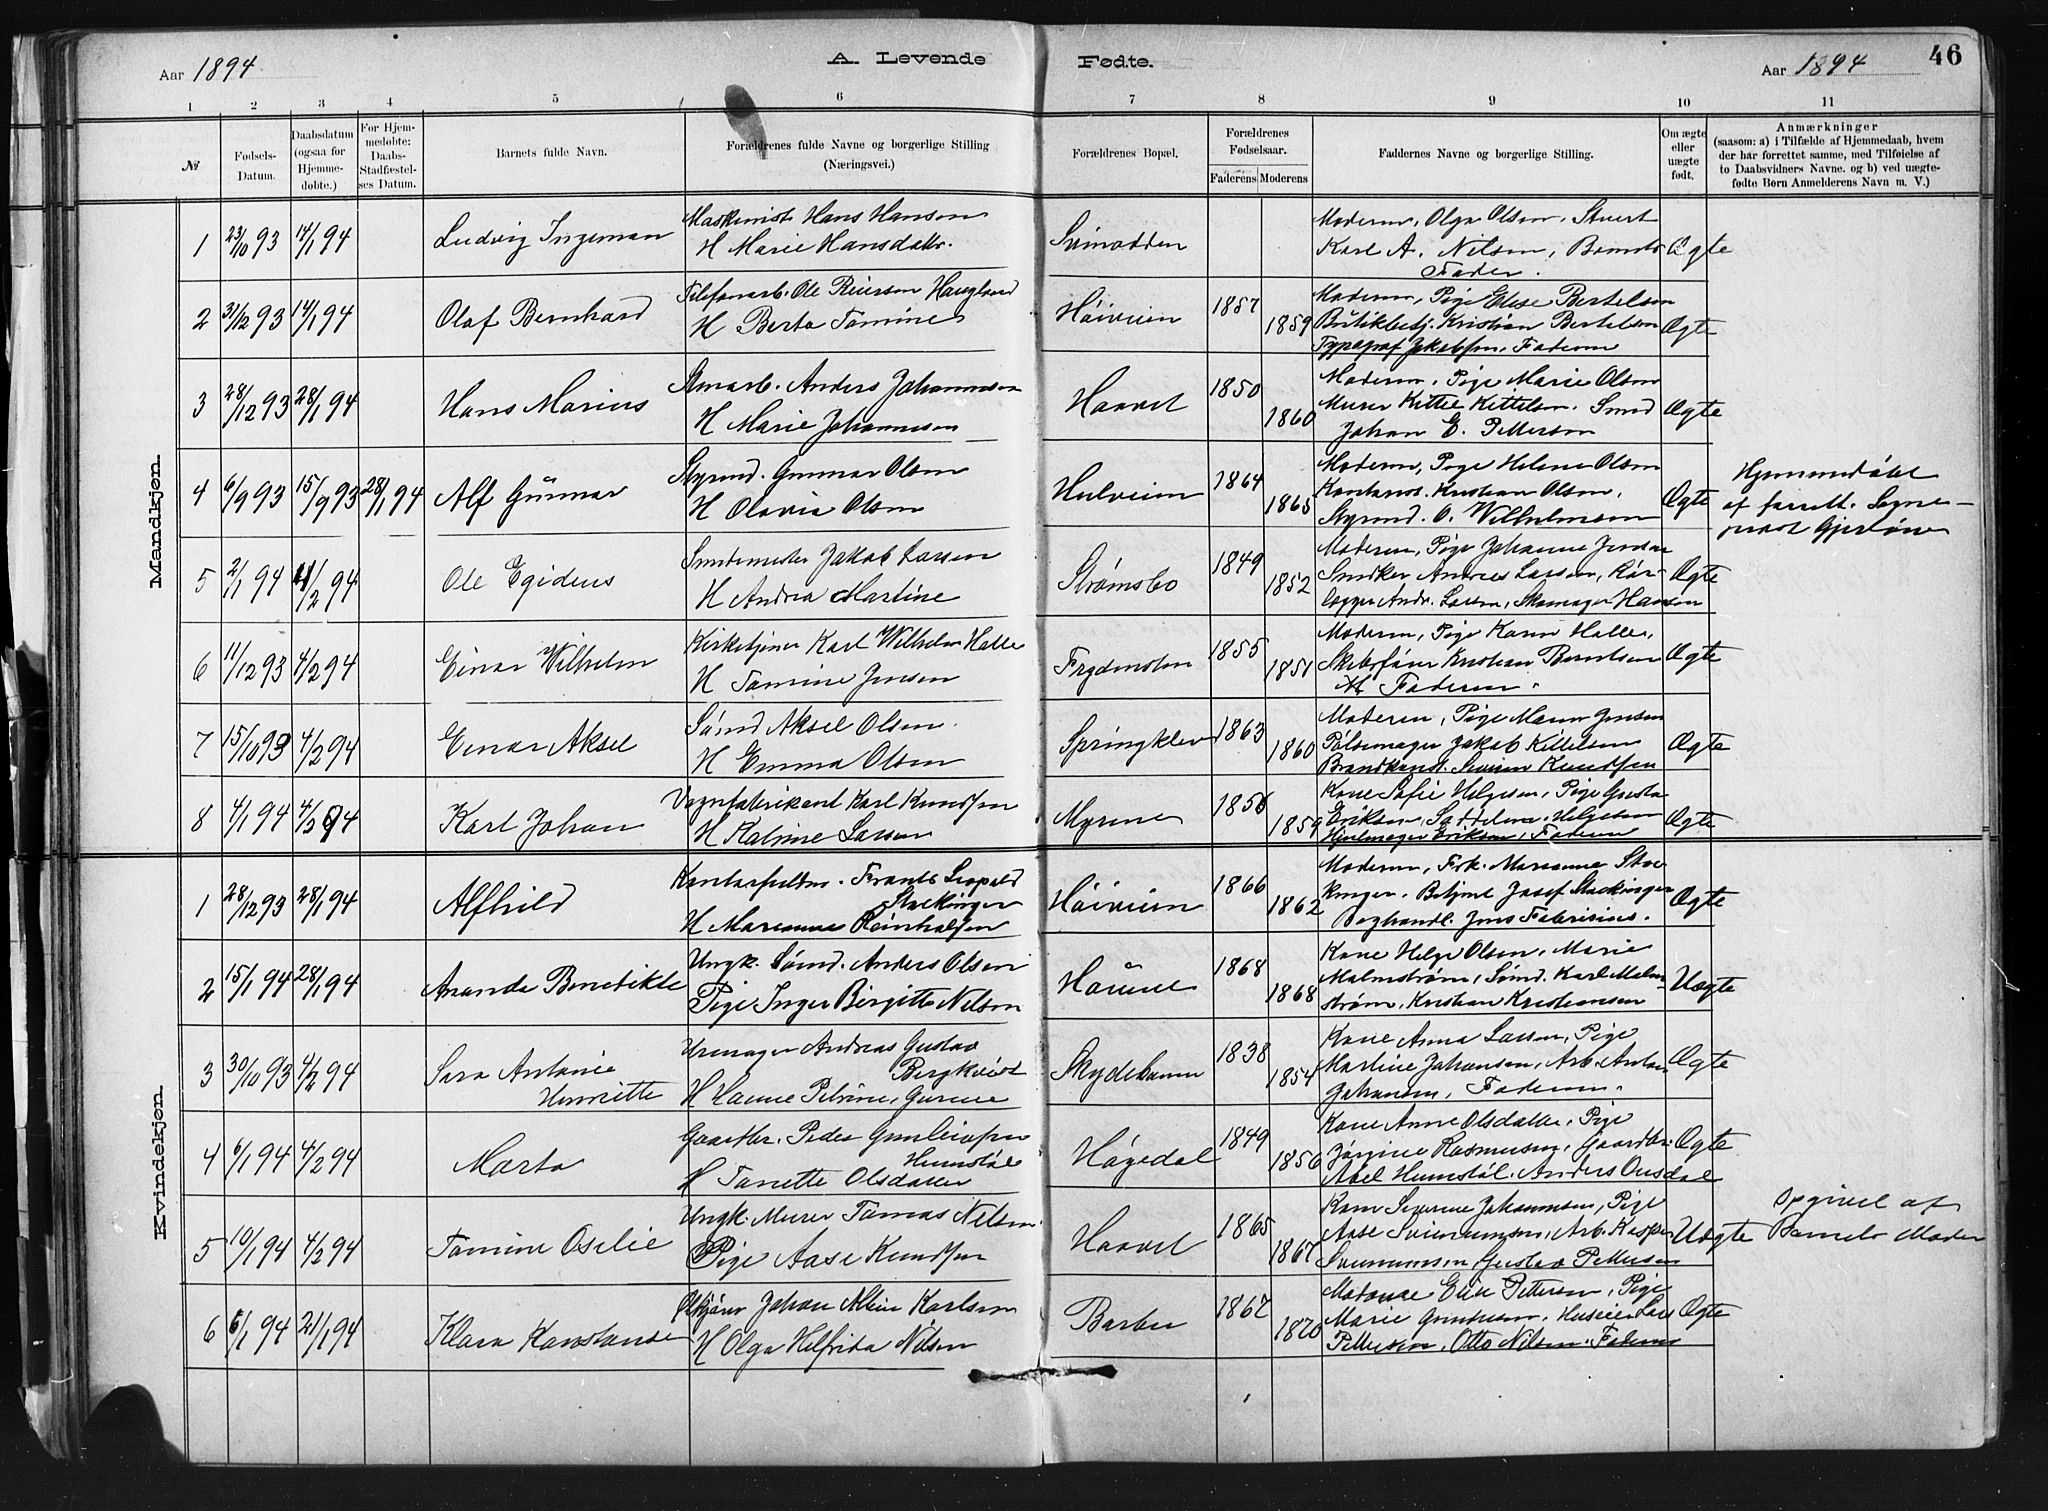 Aar 1894
A. Levende Fødte.
Aar 1894
46
1 2 3 4 5 6 7 8 9 10 11
№
Fødsels-Datum.
Daabsdatum (ogsaa for Hjemme-døbte.)
For Hjem-medøbte: Daabs-Stadfæstel-ses Datum.
Barnets fulde Navn.
Forældrenes fulde Navne og borgerlige Stilling (Næringsvei.)
Forældrenes Bopæl.
Forældrenes Fødselsaar.
Faderens Moderens
Faddernes Navne og borgerlige Stilling.
Om ægte eller uægte født.
Anmærkninger
(saasom: a) i Tilfælde af Hjemmedaab, hvem der har forrettet samme, med Tilføielse af to Daabsvidners Navne. og b) ved uægte-fødte Børn Anmelderens Navn m. V.)
Mandkjøn.
1 23/10 93 14/1 94 Ludvig Ingeman
Maskinist Hans Hansen
H Marie Hansdatr.
Svinodden
Moderen, Olga Olsen, Stuert
Karl A. Nilsen, Barnets
Fader.
Ægte
2 31/12 93 14/1 94 Olaf Bernhard
Telefonarb. Ole Reierson Haugland
H Berta Tomine
Høiveien 1857 1859
Moderen, Pige Elise Bertelsen
Butikbetj. Kristian Bertelsen
Typograf Jakobsen, Faderen
Ægte
3 28/12 93 28/1 94 Hans Marius
Anders Johannesen
H Marie Johannesen
Haavet 1850 1860
Moderen, Pige Marie Olsen
Murer Kittel Kittelsen, Smed
Johan E. Pettersen
Ægte
4 6/9 93 15/9 93 28/1 94 Alf Gunnar
Styrmd. Gunnar Olsen
H Olavia Olsen
Hulveien 1864 1865
Moderen, Pige Helene Olsen
Kristian Olsen,
Styrmd. O. Wilhelmsen
Ægte
Hjemmedøbt
af forrett. Sogne-
prest
5 2/1 94 11/2 94 Ole Egidius
Smedemester Jakob Larsen
H Andrea Martine
Strømsbo 1849 1852
Moderen, Pige Johanne Jensen
Snedker Andreas Larsen, Rør-
lægger Andr. Larsen, Skomager Hansen
Ægte
6 11/12 93 4/2 94 Einar Wilhelm
Kirketjener Karl Wilhelm Halle
H Tomine Jensen
Frydensten 1855 1851
Moderen, Pige Karen Halle,
Skibsfører Kristian Berntsen
Faderen.
Ægte
7 15/10 93 4/2 94 Einar Aksel
Sømd Aksel Olsen
H Emma Olsen
Springklev 1863 1860
Moderen, Pige Maren Jensen
Pølsemager Jakob Kittelsen
Brandkonst. Severin Knudsen
Ægte
8 4/1 94 4/2 94 Karl Johan
Vognfabrikant Karl Knudsen
H Katrine Larsen
Myrene 1856 1859
Kone Sofie Helgesen, Pige Gusta
Eriksen, Helgesen
Hjulmager Eriksen, Faderen
Ægte
Kvindekjøn.
1 28/12 93 28/1 94 Alfhild
Frants Leopold
Stockinger
H Marianne Reinholtsen
Høiveien 1866 1862
Moderen, Frk. Marianne Stoc-
kinger, Betjent Josef Stockinger
Boghandl. Jens Fabricius.
Ægte
2 15/1 94 28/1 94 Ananda Benedikte
Ungk. Sømd. Anders Olsen
Pige Inger Birgitte Nilsen
1868 1868
Kone Helga Olsen, Marie
Malmstrøm, Sømd. Karl Malm-
strøm, Kristian Kristiansen
Uægte
3 30/10 93 4/2 94 Sara Antonie
Henriette
Urmager Andreas Gustav
Bergkvist
H Hanne Petrine,
Skydebanen 1838 1854
Kone Anna Larsen, Pige
Martine Johansen, Arb. Anton
Johansen, Faderen.
Ægte
4 6/1 94 4/2 94 Marta
Gaardbr. Peder Gunleivsen
Humstøl
H Tonette Olsdatter
Høgedal 1849 1856
Kone Anne Olsdatter, Pige
Jørgine Rasmussen, Gaardbr.
Abel Humstøl, Anders Ousdal
Ægte
5 10/1 94 4/2 94 Tomine Oselie
Ungk. Murer Tomas Nilsen
Pige Aase Knudsen
Haavet 1865 1867
Kone Severine Johannesen, Pige
Aase Sveinunsen, Arb. Kasper
Sveinunsen, Gustav Pettersen
Uægte
Opgivet af
Barnets Moder
6 6/1 94 21/1 94 Klara Konstanse
Johan Albin Karlsen
H Olga Helfrida Nilsen
Barbu 1867 1870
Madame Elise Pettersen, Pige
Marie Gundersen, Huseier Lars
Pettersen, Otto Nilsen. Faderen
Ægte